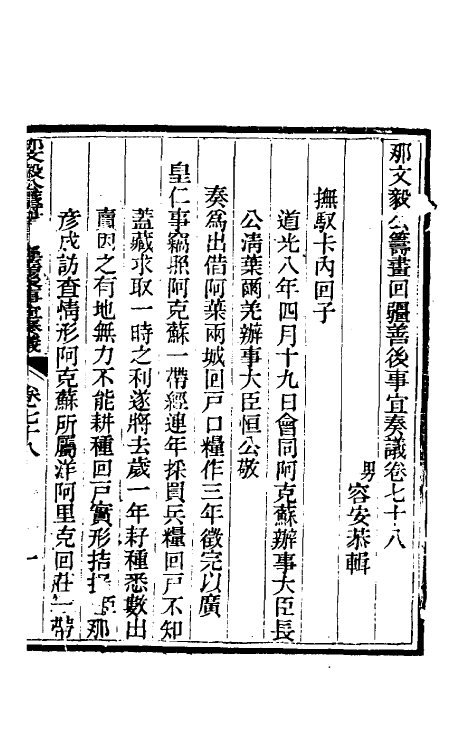 那文毅公籌畫回疆善後事宜奏議卷七十八
男
容安恭輯
撫馭卡內回子
道光八年四月十九日會同阿克蘇辦事大臣長
公淸葉爾羌辦事大臣恒公敬
奏爲出借阿葉兩城回戶口糧作三年徵完以廣
皇仁事竊照阿克蘇一帶經連年採買兵糧回戶不知
蓋藏求取一時之利遂將去歲一年籽種悉數出
賣因之有地無力不能耕種回戶實形拮据臣那
彥成訪查情形阿克蘇所屬渾阿里克回莊一帶
卷七十八
一